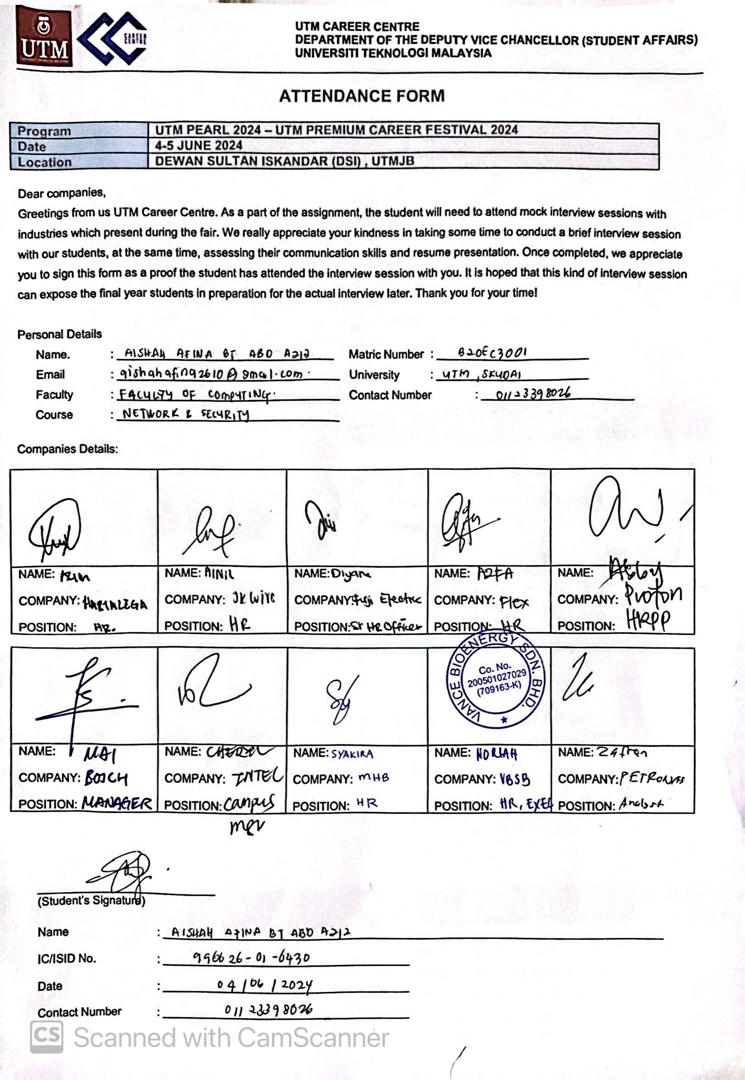 UTM
UTM CAREER CENTRE
DEPARTMENT OF THE DEPUTY VICE CHANCELLOR (STUDENT AFFAIRS)
UNIVERSITI TEKNOLOGI MALAYSIA
ATTENDANCE FORM
Program UTM PEARL 2024 – UTM PREMIUM CAREER FESTIVAL 2024
Date 4-5 JUNE 2024
Location DEWAN SULTAN ISKANDAR (DSI) , UTMJB
Dear companies,
Greetings from us UTM Career Centre. As a part of the assignment, the student will need to attend mock interview sessions with
industries which present during the fair. We really appreciate your kindness in taking some time to conduct a brief interview session
with our students, at the same time, assessing their communication skills and resume presentation. Once completed, we appreciate
you to sign this form as a proof the student has attended the interview session with you. It is hoped that this kind of interview session
can expose the final year students in preparation for the actual interview later. Thank you for your time!
Personal Details
Name. : AISHAH AFINA BT ABD AZIZ Matric Number : B20EC3001
Email : aishahafina2610@gmail.com. University : UTM, SKUDAI
Faculty : FACULTY OF COMPUTING. Contact Number : 01123398026
Course : NETWORK & SECURITY
Companies Details:
NAME: NAME: AINIL NAME: Diyana NAME: AZFA NAME: Abby
COMPANY: HARTALEGA COMPANY: JK Wire COMPANY: Fuji Electric COMPANY: Flex COMPANY: Proton
POSITION: HR. POSITION: HR POSITION: Sr HR Officer POSITION: HR POSITION: HRPP
VANCE BIOENERGY SDN. BHD.
Co. No.
200501027029
(709163-K)
NAME: MAI NAME: CHERYL NAME: SYAKIRA NAME: NORIAH NAME:
COMPANY: BOSCH COMPANY: INTEL COMPANY: MHB COMPANY: VBSB COMPANY: PETRONAS
POSITION: MANAGER POSITION: Campus POSITION: HR POSITION: HR, EXE POSITION: Analyst
(Student's Signature)
Name : AISHAH AFINA BT ABD AZIZ
IC/ISID No. : -01-6430
Date : 04/06/2024
Contact Number : 01123398026
CS Scanned with CamScanner